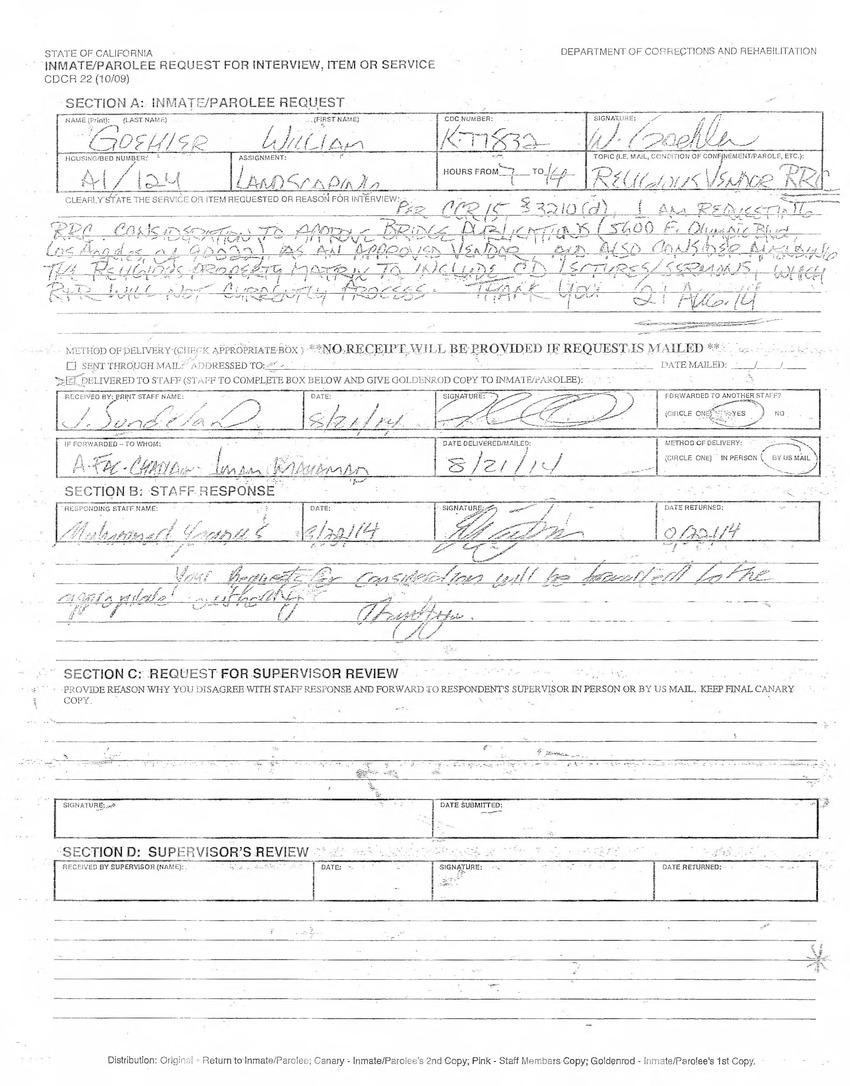 STATE OF CALIFORNIA
DEPARTMENT OF CORRECTIONS AND REHABILITATION
INMATE/PAROLEE REQUEST FOR INTERVIEW, ITEM OR SERVICE
CDCR 22 (10/09)
SECTION A: INMATE/PAROLEE REQUEST
NAME (Print): (LAST NAME) (FIRST NAME) CDC NUMBER: SIGNATURE:
GOEHLER WILLIAM K-77832 W. Goehler
HOUSING/BED NUMBER: ASSIGNMENT: HOURS FROM 7 TO 14 TOPIC (I.E. MAIL, CONDITION OF CONFINEMENT/PAROLE, ETC.):
A1/124 LANDSCAPING RELIGIOUS VENDOR RRC
CLEARLY STATE THE SERVICE OR ITEM REQUESTED OR REASON FOR INTERVIEW:
PER CCR 15 § 3210(d), I AM REQUESTING
RRC CONSIDERATION TO APPROVE BRIDGE PUBLICATIONS (5600 E. Olympic Blvd
Los Angeles CA 90022) AS AN APPROVED VENDOR AND ALSO CONSIDER
THE RELIGIOUS PROPERTY MATRIX TO INCLUDE CD LECTURES/SERMONS, WHICH
R&R WILL NOT CURRENTLY PROCESS THANK YOU 21 AUG. 14
METHOD OF DELIVERY (CHECK APPROPRIATE BOX) **NO RECEIPT WILL BE PROVIDED IF REQUEST IS MAILED **
SENT THROUGH MAIL: ADDRESSED TO: DATE MAILED: / /
DELIVERED TO STAFF (STAFF TO COMPLETE BOX BELOW AND GIVE GOLDENROD COPY TO INMATE/PAROLEE):
RECEIVED BY: PRINT STAFF NAME: DATE: SIGNATURE: FORWARDED TO ANOTHER STAFF?
J. 8/21/14 (CIRCLE ONE) YES NO
IF FORWARDED – TO WHOM: DATE DELIVERED/MAILED: METHOD OF DELIVERY:
A-FAC-CHAPLAIN Imam 8/21/14 (CIRCLE ONE) IN PERSON BY US MAIL
SECTION B: STAFF RESPONSE
RESPONDING STAFF NAME: DATE: SIGNATURE: DATE RETURNED:
Muhammad /22/14 /22/14
Your Requests for consideration will be forwarded to the
appropriate authority
Thank you.
SECTION C: REQUEST FOR SUPERVISOR REVIEW
PROVIDE REASON WHY YOU DISAGREE WITH STAFF RESPONSE AND FORWARD TO RESPONDENT'S SUPERVISOR IN PERSON OR BY US MAIL. KEEP FINAL CANARY
COPY.
SIGNATURE: DATE SUBMITTED:
SECTION D: SUPERVISOR'S REVIEW
RECEIVED BY SUPERVISOR (NAME): DATE: SIGNATURE: DATE RETURNED:
Distribution: Original - Return to Inmate/Parolee; Canary - Inmate/Parolee's 2nd Copy; Pink - Staff Members Copy; Goldenrod - Inmate/Parolee's 1st Copy.